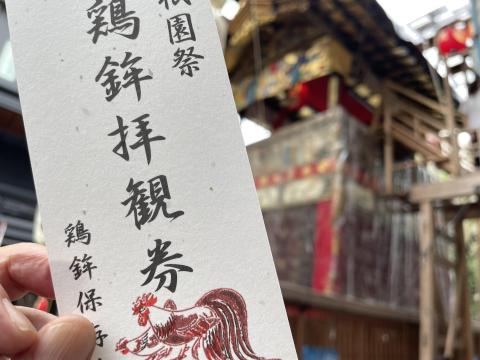 祇園祭
鶏鉾拝観券
鶏鉾保存